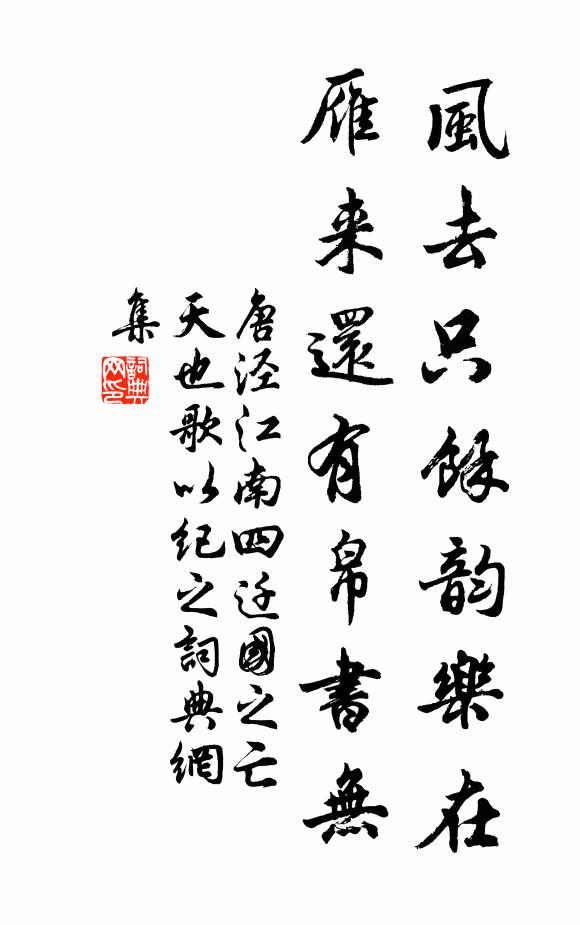 風去只餘韵樂在
雁来還有帛書無
唐泾江南四迁國之亡
天也歌以紀之詞典網
集
詞典网印